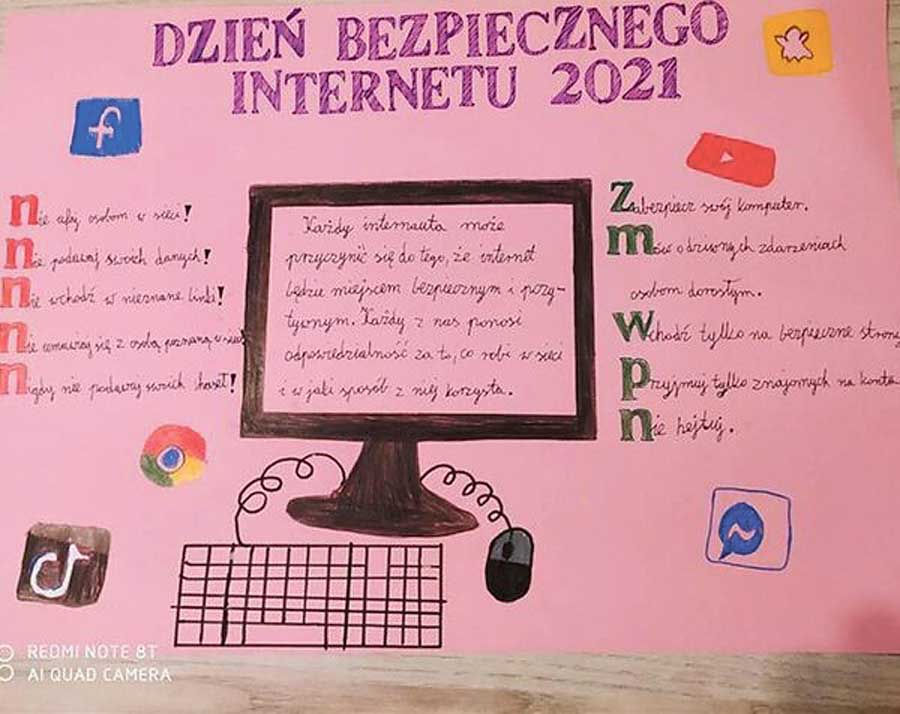 DZIEŃ BEZPIECZNEGO
INTERNETU 2021
nie ufaj osobom w sieci!
nie podawaj swoich danych!
nie wchodź w nieznane linki!
nie umawiaj się z osobą poznaną w
nigdy nie podawaj swoich haseł!
Każdy internauta może
przyczynić się do tego, że internet
będzie miejscem bezpiecznym i pozy-
tywnym. Każdy z nas ponosi
odpowiedzialność za to, co robi w sieci
i w jaki sposób z niej korzysta.
Zabezpiecz swój komputer.
mów o dziwnych zdarzeniach
osobom dorosłym.
Wchodź tylko na bezpieczne strony
przyjmuj tylko znajomych na konta
nie hejtuj.
REDMI NOTE 8T
AI QUAD CAMERA